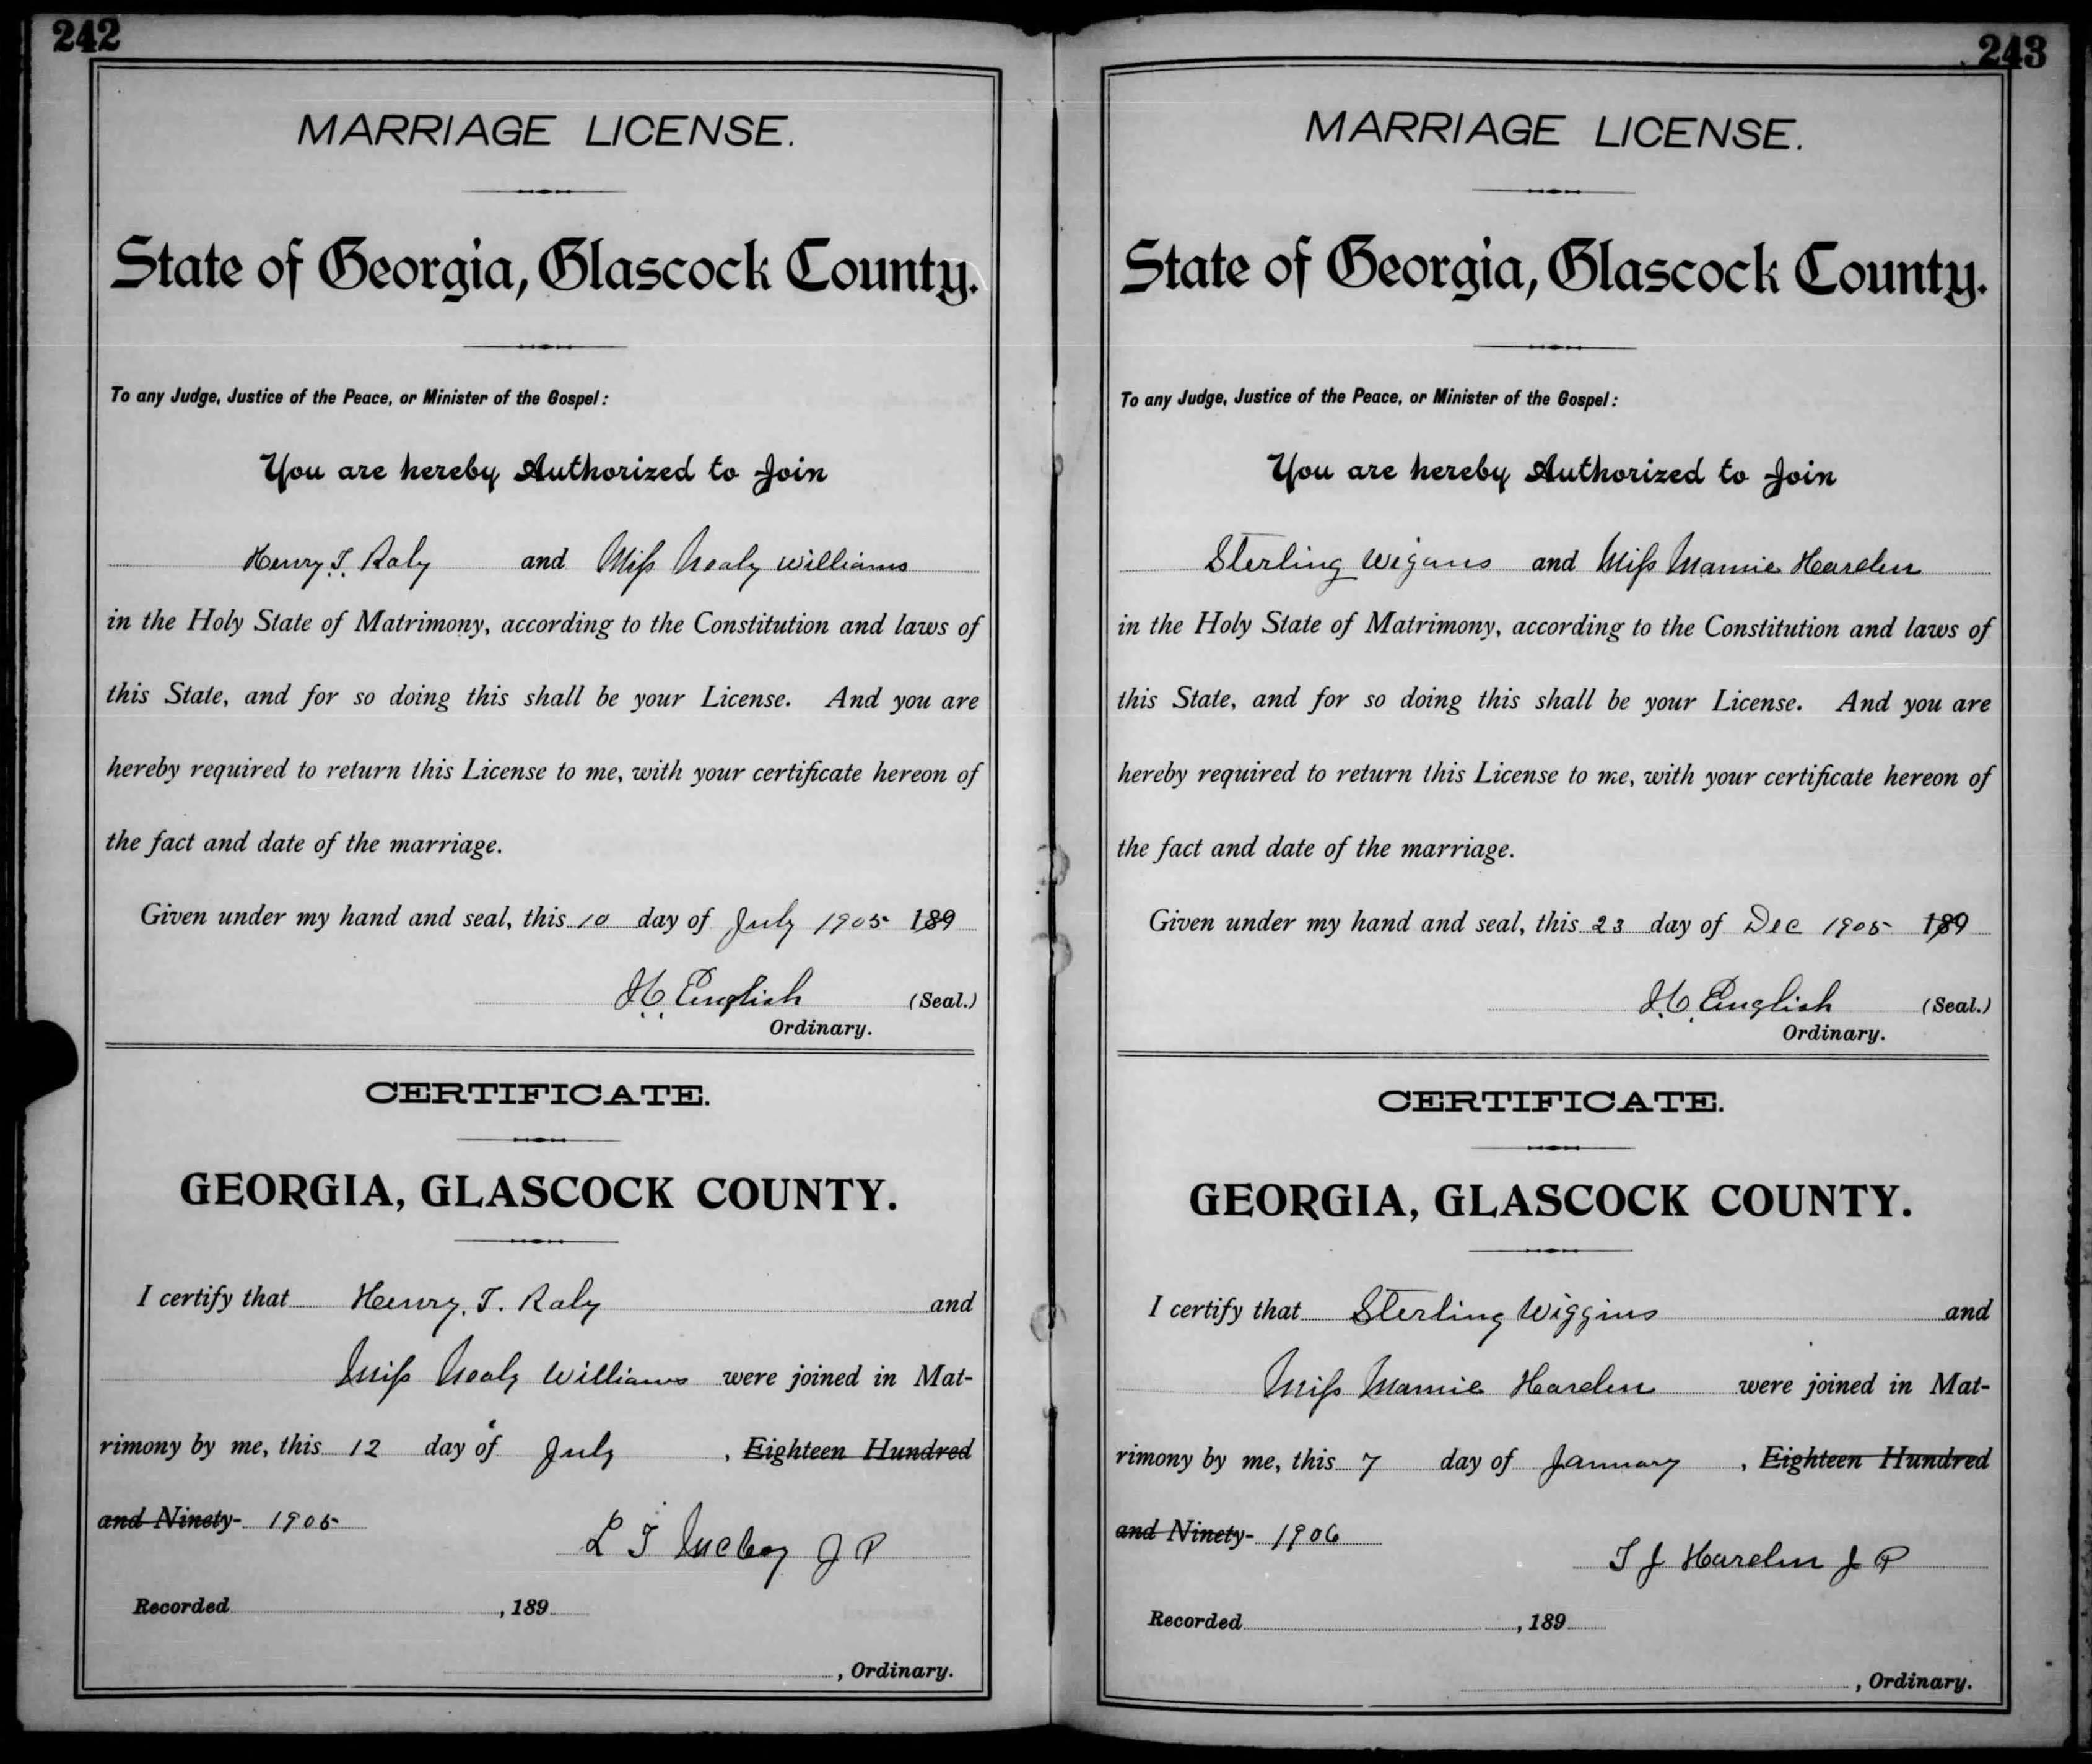 242
MARRIAGE LICENSE.
State of Georgia, Glascock County.
To any Judge, Justice of the Peace, or Minister of the Gospel:
You are hereby Authorized to Join
Henry T. Raly and Miss Nealy Williams
in the Holy State of Matrimony, according to the Constitution and laws of
this State, and for so doing this shall be your License. And you are
hereby required to return this License to me, with your certificate hereon of
the fact and date of the marriage.
Given under my hand and seal, this 10 day of July 1905 189
English (Seal.)
Ordinary.
CERTIFICATE.
GEORGIA, GLASCOCK COUNTY.
I certify that Henry. T. Raly and
Miss Nealy Williams were joined in Mat-
rimony by me, this 12 day of July, Eighteen Hundred
and Ninety- 1905
L T J P
Recorded , 189
, Ordinary.
243
MARRIAGE LICENSE.
State of Georgia, Glascock County.
To any Judge, Justice of the Peace, or Minister of the Gospel:
You are hereby Authorized to Join
Sterling Wigans and Miss Mamie Harden
in the Holy State of Matrimony, according to the Constitution and laws of
this State, and for so doing this shall be your License. And you are
hereby required to return this License to me, with your certificate hereon of
the fact and date of the marriage.
Given under my hand and seal, this 23 day of Dec 1905 189
English (Seal.)
Ordinary.
CERTIFICATE.
GEORGIA, GLASCOCK COUNTY.
I certify that Sterling Wiggins and
Miss Mamie Harden were joined in Mat-
rimony by me, this 7 day of January, Eighteen Hundred
and Ninety- 1906
T J Harden J P
Recorded , 189
, Ordinary.